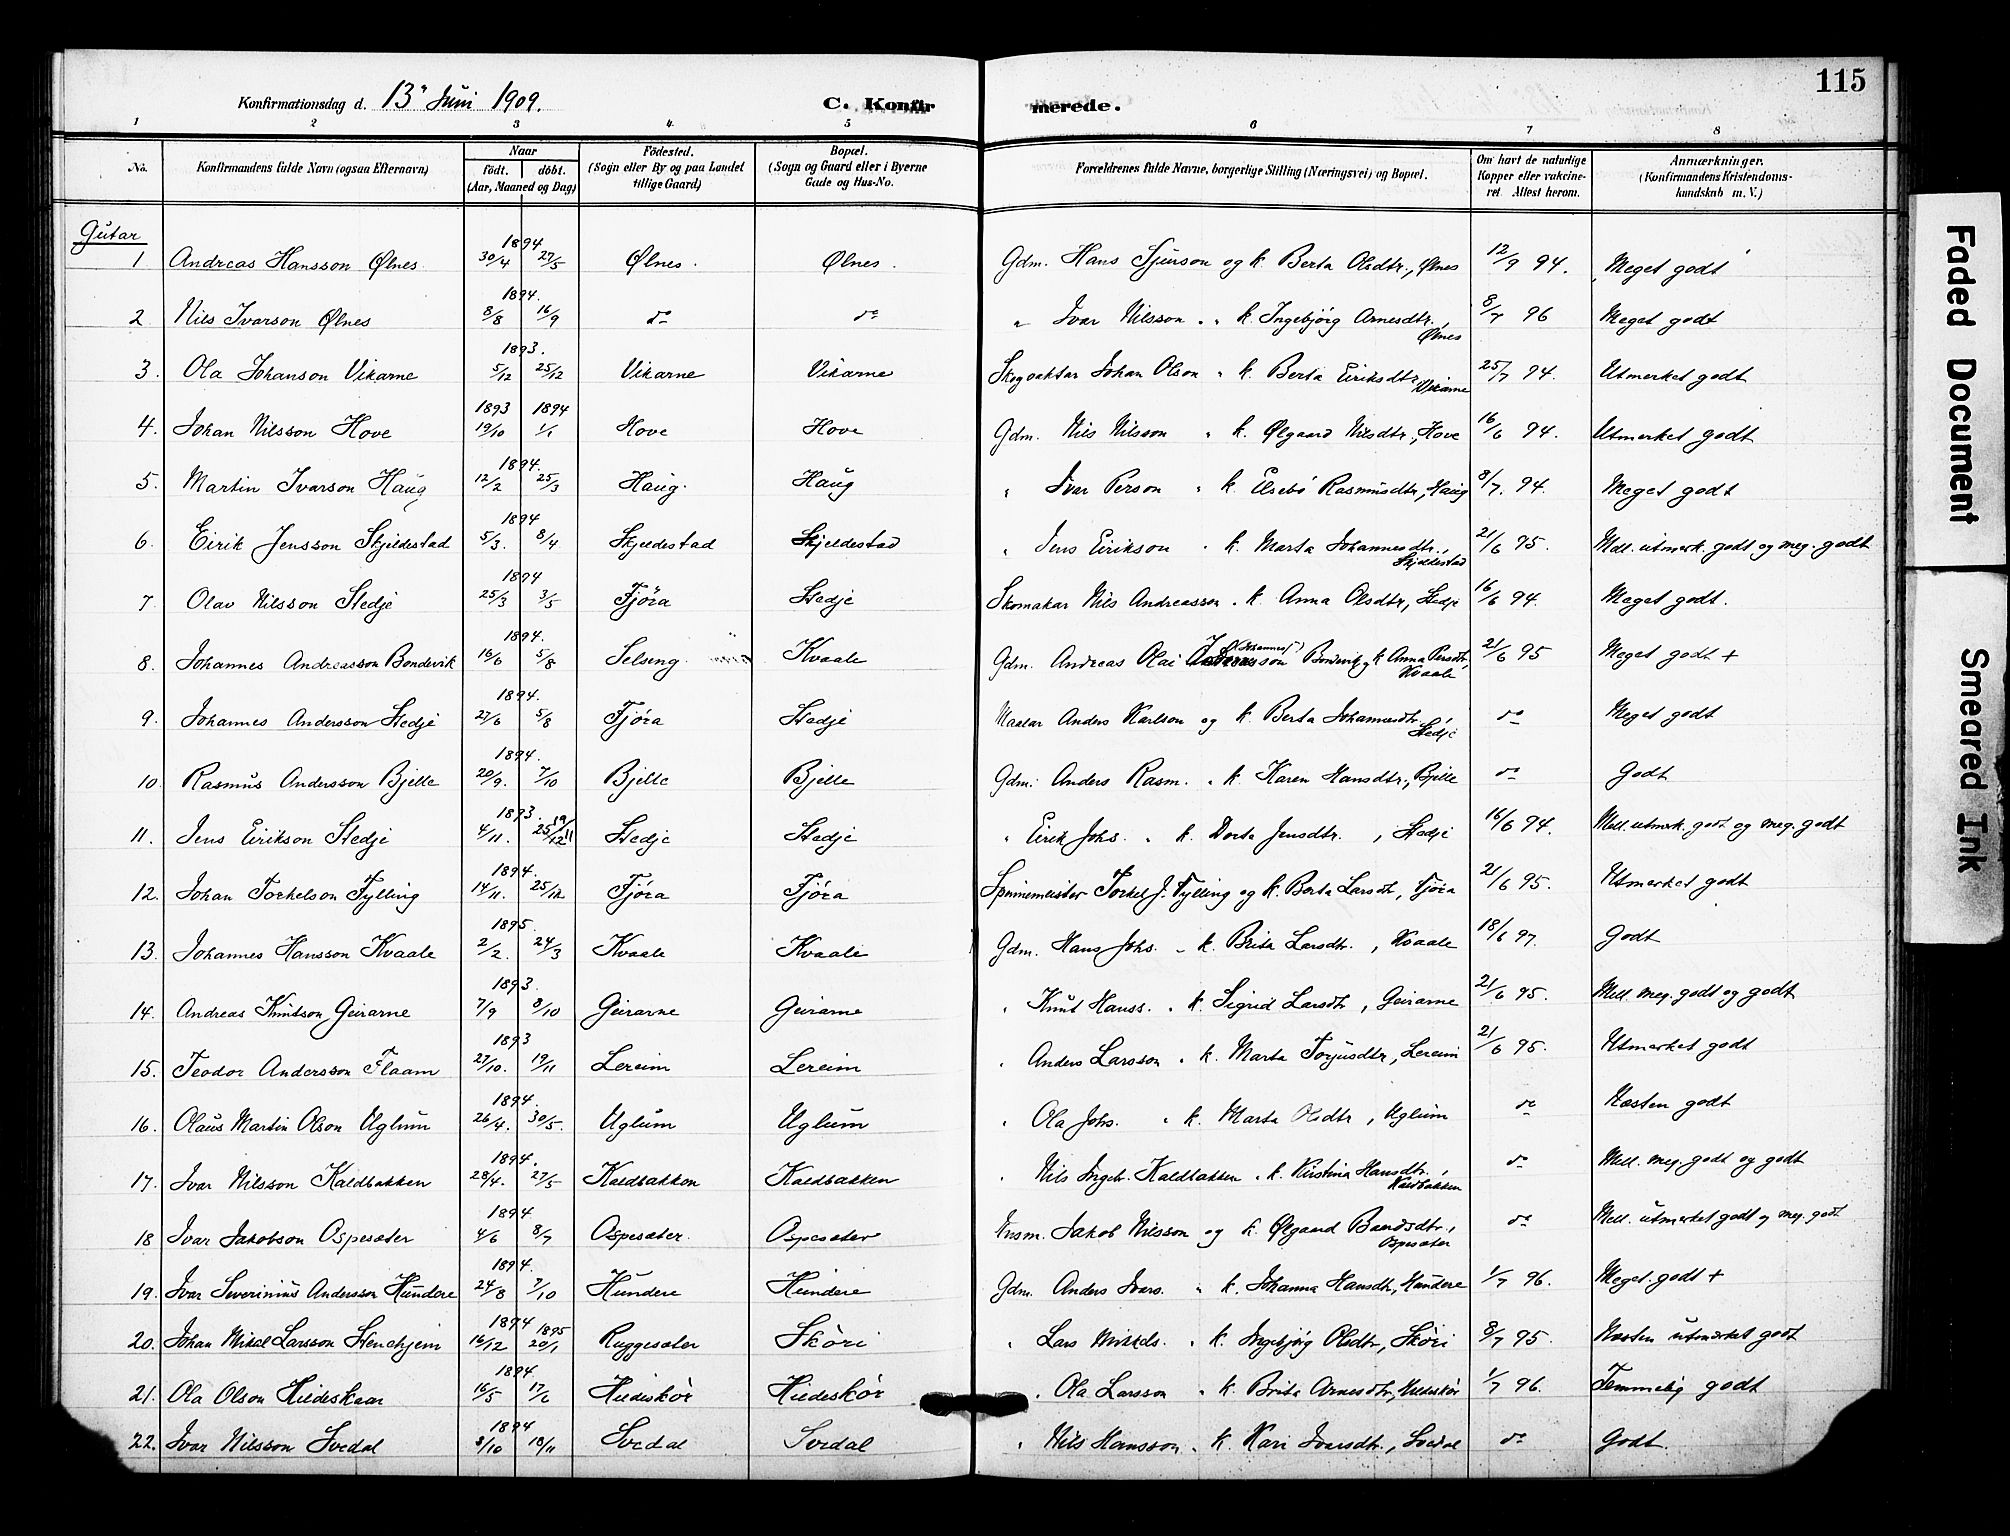 115
Konfirmationsdag d. 13' Juni 1909. C. Konfir merede.
1 2 3 4. 5 6 7 8
No. Konfirmandens fulde Navn (ogsaa Efternavn) Naar født. døbt. (Aar, Maaned og Dag) Fødested. (Sogn eller By og paa Landet tillige Gaard) Bopæl. (Sogn og Gaard eller i Byerne Gade og Hus-No. Forældrenes fulde Navne, borgerlige Stilling (Næringsvei) og Bopæl. Om havt de naturlige Kopper eller vakcineret Attest herom. Anmærkninger. (Konfirmandens Kristendomskundskab m. V.)
Gutar
1 Andreas Hansson Ølnes 1894 30/4 27/5 Ølnes. Ølnes. Gdm. Hans Sjurson og k. Berta Olsdtr., Ølnes 12/9 94. Meget godt
2 Nils Ivarson Ølnes 1894. 8/8 16/9 do do " Ivar Nilsson " k. Ingebjørg Arnesdtr., Ølnes 8/7 96 Meget godt
3. Ola Johanson Vikarne 1893. 5/12 25/12 Vikarne Vikarne Skogvaktar Johan Olson " k. Berta Eiriksdtr, Vikarne 25/7 94. Utmerket godt
4. Johan Nilsson Hove 1893 19/10 1894 1/1 Hove Hove Gdm. Nils Nilsson " k. Ølgaard Nilsdtr., Hove 16/6 94. Utmerket godt
5. Martin Ivarson Haug 1894. 12/2 25/3 Haug. Haug " Ivar Person " k. Elsebø Rasmusdtr., Haug 8/7. 94. Meget godt
6. Eirik Jensson Skjeldestad 1894 5/3. 8/4 Skjeldestad Skjeldestad " Jens Eirikson " k. Marta Johannesdtr., Skjeldestad 21/6 95. Mell. utmerk. godt og meg. godt
7. Olav Nilsson Stedje 1894 25/3 3/5 Fjøra Stedje Skomakar Nils Andreasson " k. Anna Olsdtr, Stedje 16/6 94. Meget godt.
8. Johannes Andreasson Bondevik 1894. 16/6 5/8 Selseng. Kvaale Gdm. Andreas Olai (Johannes) Bondevik og k Anna Persdtr, Kvaale 21/6 95 Meget godt +
9. Johannes Andersson Stedje 1894. 27/6 5/8 Fjøra Stedje Maalar Anders Karlson og k. Berta Johannesdtr., Stedje do Meget godt
10. Rasmus Andersson Bjelle 1894. 20/9. 7/10 Bjelle Bjelle Gdm. Anders Rasm. " k. Karen Hansdtr., Bjelle do Godt
11. Jens Eirikson Stedje 1893. 4/11. 25/12 19/11 Stedje Stedje " Eirik Johs. " k. Dorta Jensdtr., Stedje 16/6 94. Mell. utmerk. godt og meg. godt
12. Johan Torkelson Fylling 1894. 14/11. 25/12 Fjøra Fjøra Spinnemeister Torkel J. Fylling og k. Berta Larsdtr, Fjøra 21/6 95. Utmerket godt
13. Johannes Hansson Kvaale 1895. 2/2. 24/3 Kvaale Kvaale Gdm. Hans Johs. " k. Brita Larsdtr., Kvaale 18/6 97. Godt
14. Andreas Knutson Geirarne 1893. 7/9 8/10 Geirarne Geirarne " Knut Hanss. " k. Sigrid Larsdtr, Geirarne 21/6 95. Mell. meg. godt og godt
15. Teodor Andersson Flaam 1893 27/10. 19/11 Lereim Lereim " Anders Larsson " k. Marta Torjusdtr, Lereim 21/6 95. Utmerket godt
16. Olaus Martin Olson Uglum 1894. 26/4. 30/5. Uglum Uglum " Ola Johs. " k. Marta Olsdtr, Uglum do Næsten godt
17. Ivar Nilsson Kaldbakken 1894. 28/4. 27/5 Kaldbakken Kaldbakken " Nils Ingebr. Kaldbakken " k. Kristina Hansdtr., Kaldbakken do Mell. meg. godt og godt
18 Ivar Jakobson Ospesæter 1894 4/6 8/7 Ospesæter. Ospesæter Husm. Jakob Nilsson og k. Ølgaard Baardsdtr., Ospesæter do Mell. utmerket godt og meg. godt
19. Ivar Severinius Andersson Hundere 1894. 24/8 7/10 Hundere Hundere Gdm. Anders Ivars. " k. Johanna Hansdtr, Hundere 1/7 96. Meget godt +
20. Johan Mikal Larsson Stenehjem 1894 16/12 1895 20/1 Ruggesæter Skøri " Lars Mikkels. " k. Ingebjørg Olsdtr, Skøri 8/7 95. Næsten utmerket godt
21. Ola Olson Hildeskaar 1894 16/5 17/6 Hildeskør Hildeskør " Ola Larsson " k. Brita Arnesdtr, Hildeskør 1/7 96. Temmelig godt
22. Ivar Nilsson Svedal 1894 8/10 18/11 Svedal Svedal " Nils Hansson " k. Kari Ivarsdtr., Svedal do Godt.
Faded Document
Smeared Ink